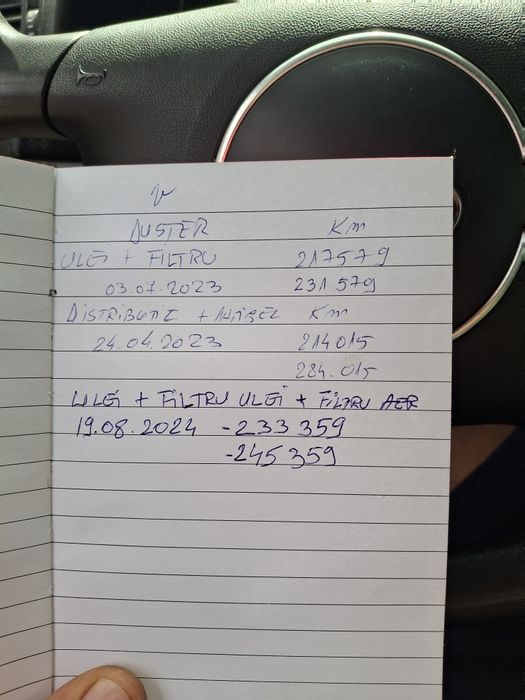 DUSTER Km
ULEI + FILTRU 217579
03.07.2023 231579
DISTRIBUTIE + Km
24.04.2023 214015
284.015
ULEI + FILTRU ULEI + FILTRU AER
19.08.2024 -233 359
-245 359